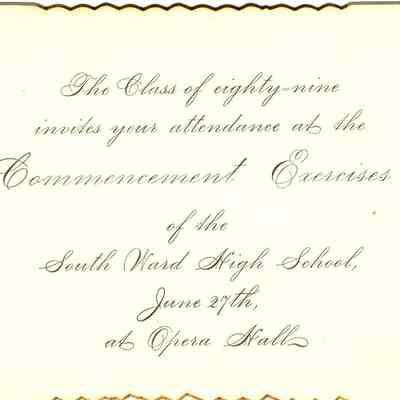 The Class of eighty-nine
invites your attendance at the
Commencement Exercises
of the
South Ward High School,
June 27th,
at Opera Hall